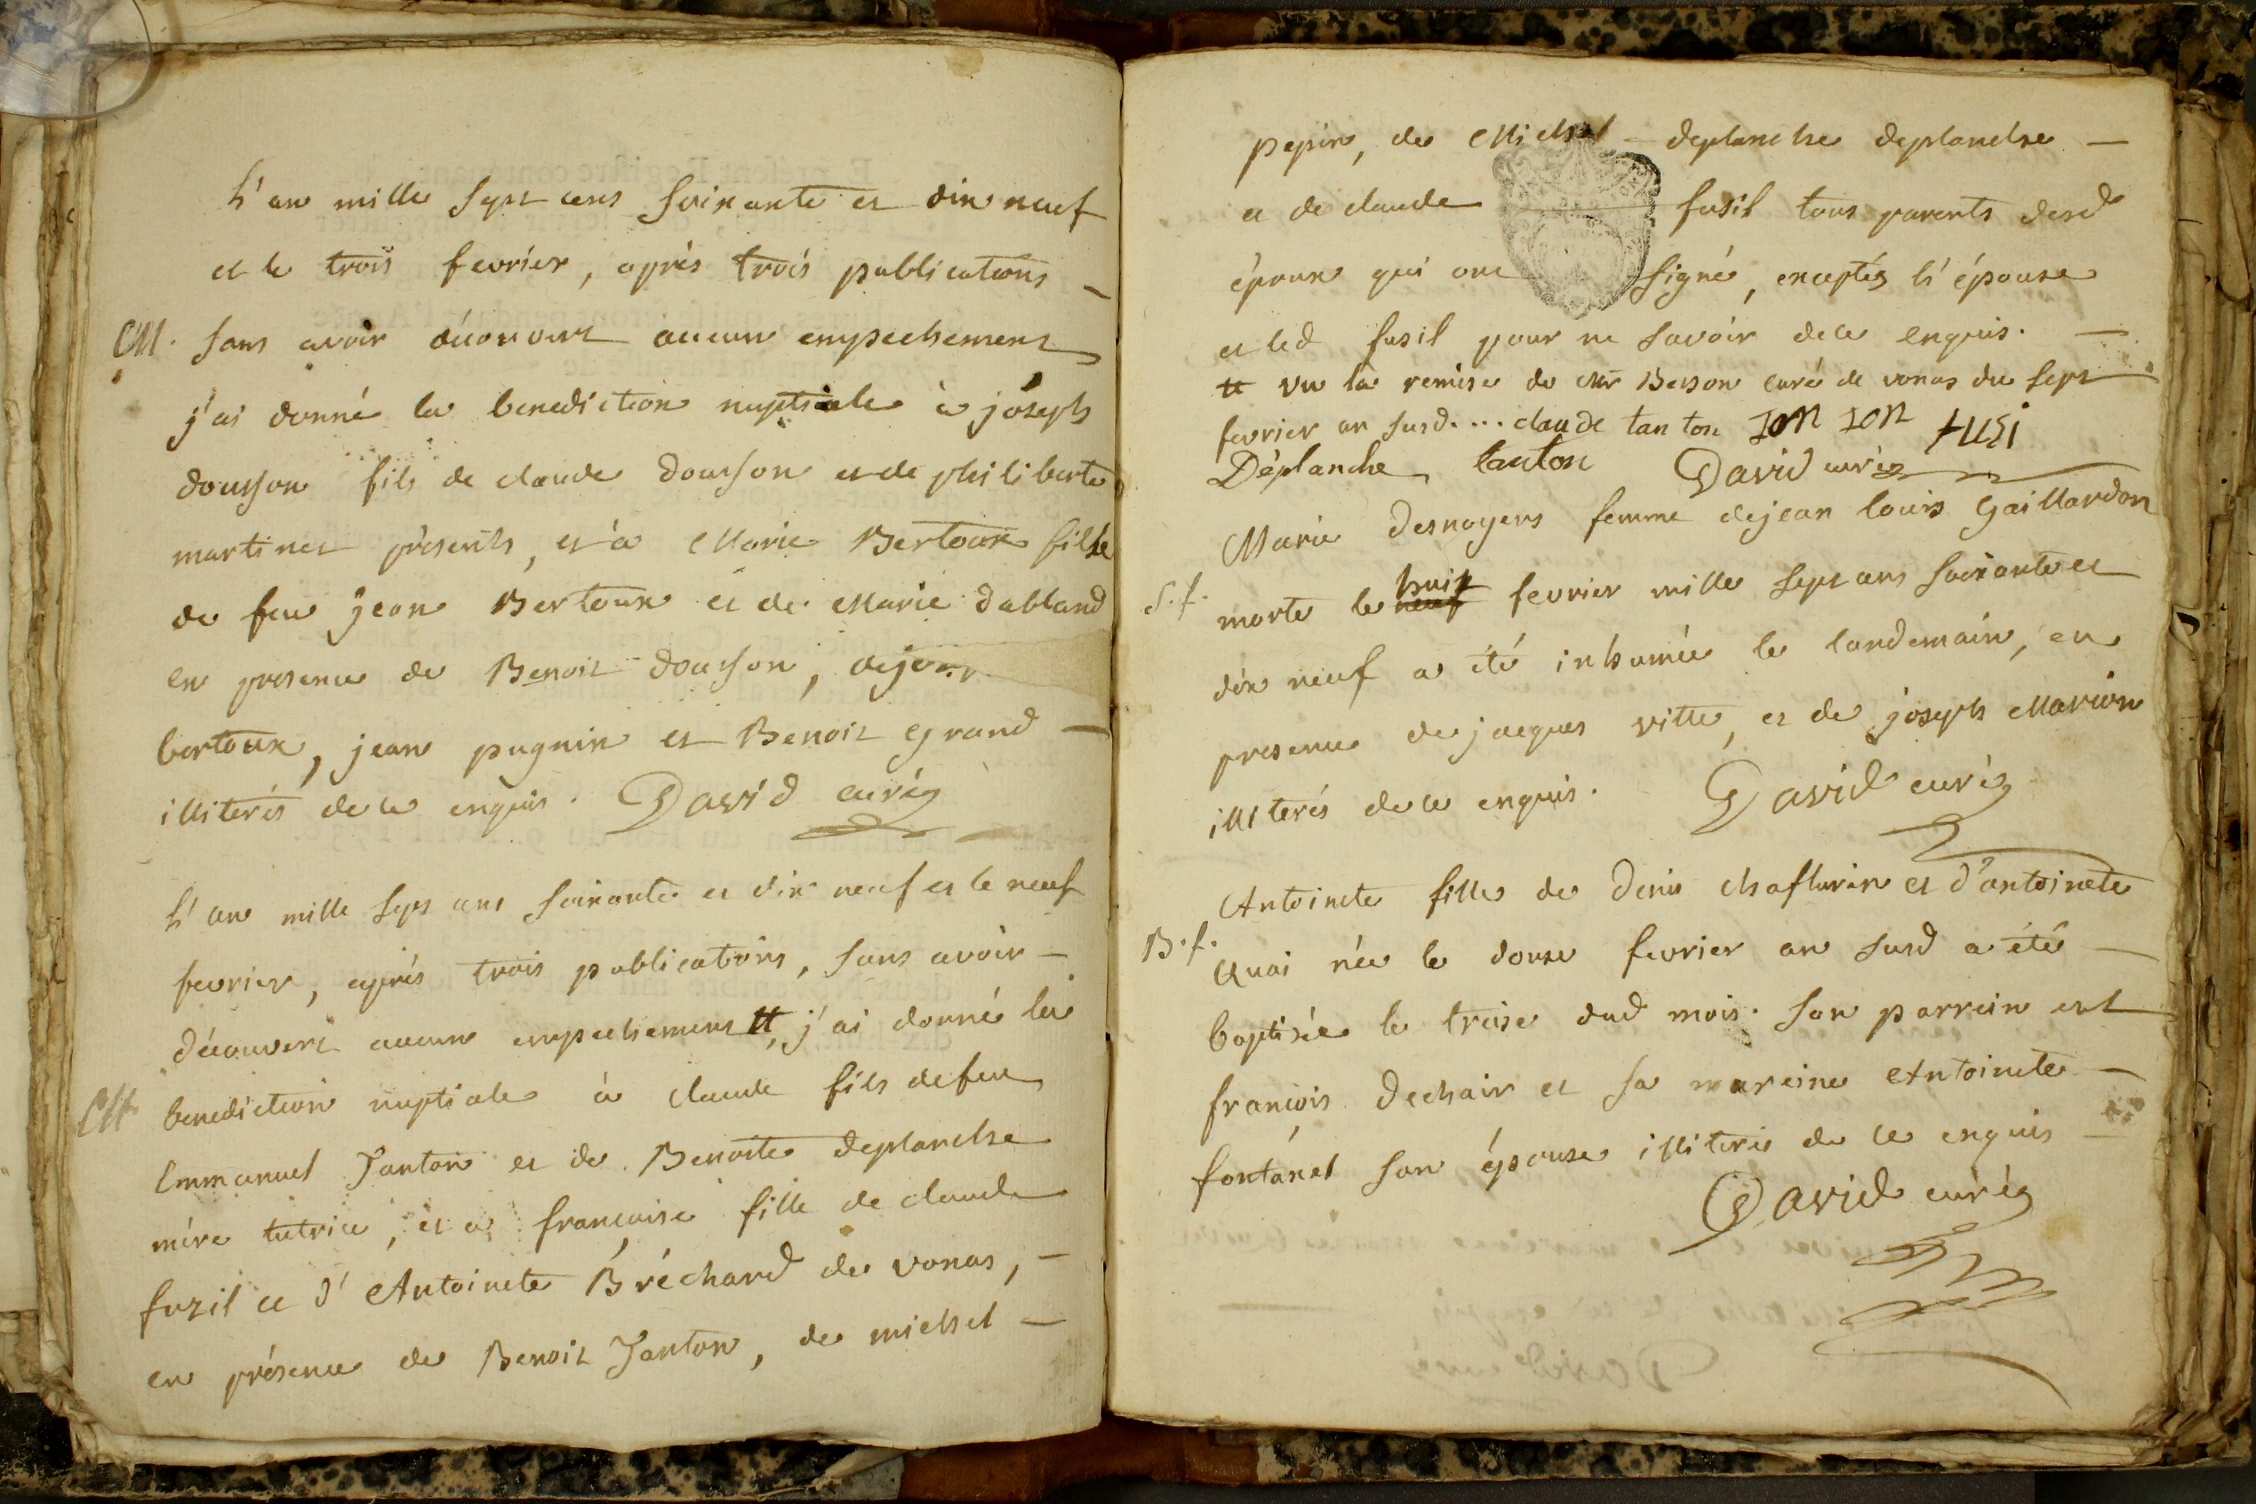 L'an mille sept cens soixante et dix neuf
et le trois fevrier, après trois publications —
M. sans avoir découvert aucun empechement
j'ai donné la benediction nuptiale à joseph
douson fils de claude douson et de philiberte
martinet présents, et à Marie Bertoux fille
de feu jean Bertoux et de Marie dabland
en presence de Benoit douson, de jean
bertoux, jean pugnin et Benoit grand —
illiterés de ce enquis. David curé
L'an mille sept cens soixante et dix neuf et le neuf
fevrier, après trois publications, sans avoir —
découvert aucun empechement tt, j'ai donné la
M. benediction nuptiale à claude fils de feu
Emmanuel Tanton et de Benoite deplanche
mère tutrice, et à françoise fille de claude
fuzil et d'Antoinete Bréchard de vonas, —
en présence de Benoit Tanton, de michel —
pepin, de Michel deplanche deplanche —
et de claude fusil tous parents desd
époux qui ont signé, exceptés l'épouse
et led fusil pour ne savoir de ce enquis. —
tt vu la remise de Mr Berson curé de vonas du sept
fevrier an susd.... claude tan ton
Déplanche tanton David curé
Marie Desnoyers femme de jean louis Gaillardon
S. f. morte le neuf huit fevrier mille sept cens soixante et
dix neuf a été inhumée le landemain, en
presence de jacques vitte, et de joseph Marion
illiterés de ce enquis. David curé
Antoinete fille de Denis chaflurin et d'antoinete
B. f. Quai née le douze fevrier an susd a été —
baptisée le treise dud mois. son parrein est
françois Dechair et sa mareine Antoinete —
fontanel son épouse illiterés de ce enquis —
David curé